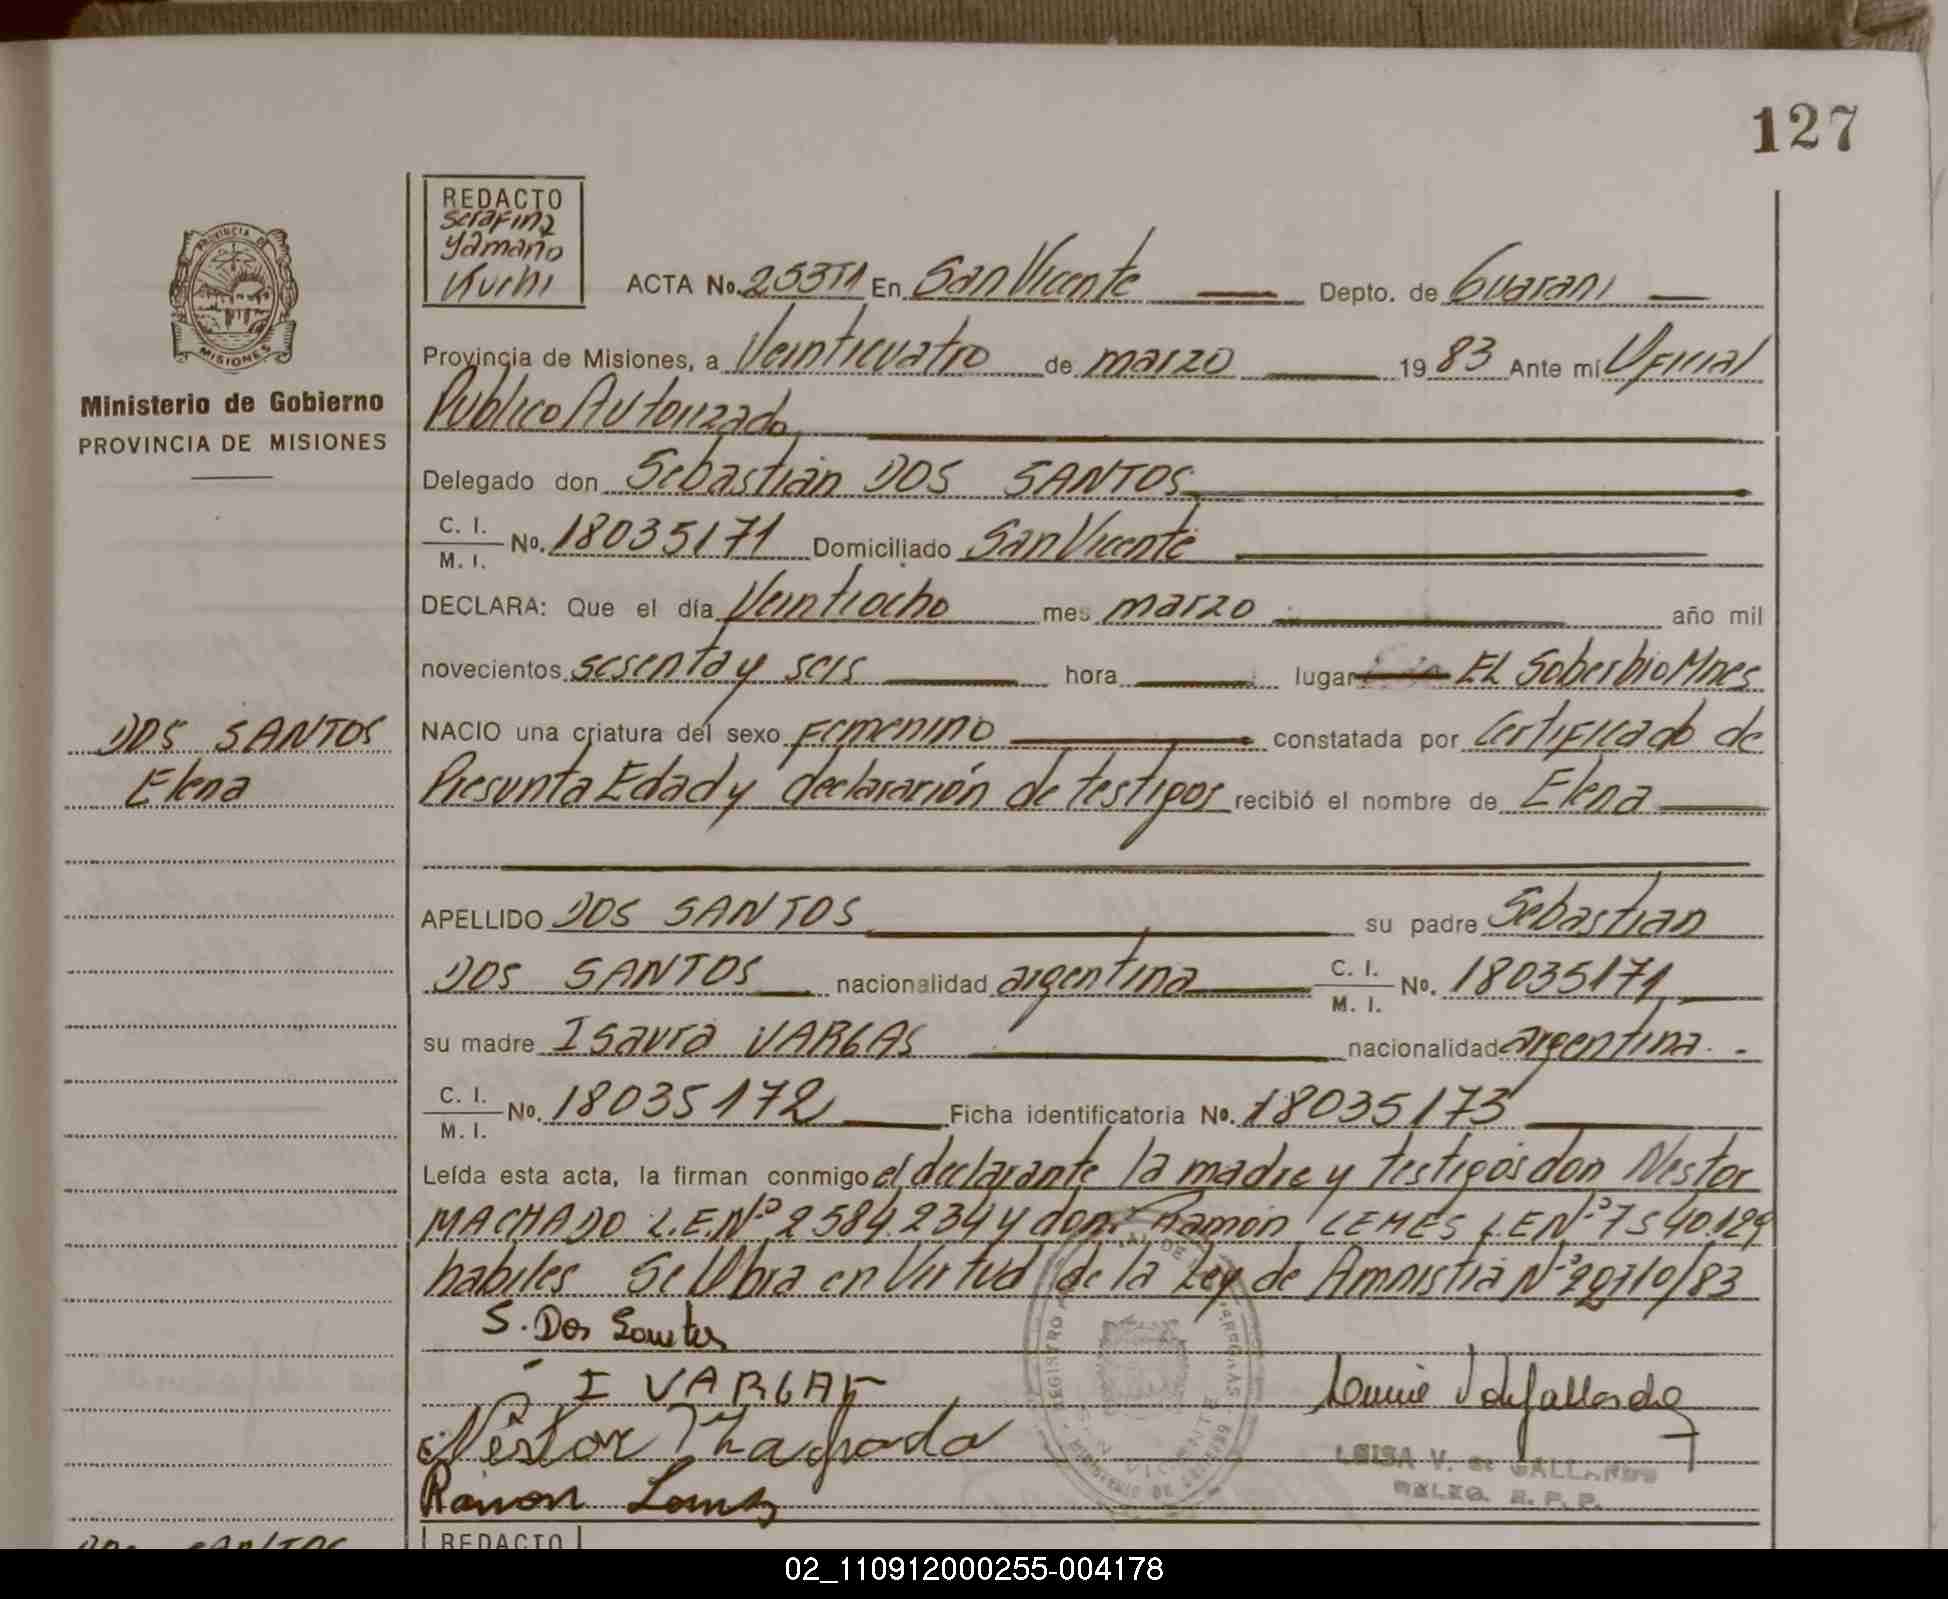 127
REDACTO
Serafina
Yamaño
Kuchi
PROVINCIA DE
MISIONES
Ministerio de Gobierno
PROVINCIA DE MISIONES
ACTA No. 253T1 En San Vicente Depto. de Guarani
Provincia de Misiones, a Veinticuatro de marzo 19 83 Ante mi Oficial
Publico Autorizado
Delegado don Sebastián DOS SANTOS
C. I.
M. I. No. 18035171 Domiciliado San Vicente
DECLARA: Que el día Veintiocho mes marzo año mil
novecientos sesenta y seis hora lugar EL Soberbio Mnes
DOS SANTOS
Elena
NACIO una criatura del sexo Femenino constatada por Certificado de
Presunta Edad y declaración de testigos recibió el nombre de Elena
APELLIDO DOS SANTOS su padre Sebastian
DOS SANTOS nacionalidad argentina C. I. M. I. No. 18035171
su madre Isaura VARGAS nacionalidad argentina. -
C. I.
M. I. No. 18035172 Ficha identificatoria No. 18035173
Leída esta acta, la firman conmigo el declarante la madre y testigos don Nestor
MACHADO L.E.Nº 2584.234 y don Ramón LEMES L.E Nº 7540.129
habiles Se Obra en Virtud de la Ley de Amnistia Nº 22710/83
S. Dos Santos
I VARGAS
Néstor Machado
Ramon Lemes
LUISA V. de GALLARDO
DELEG. R. P. P.
REDACTO
DOS SANTOS
02_110912000255-004178